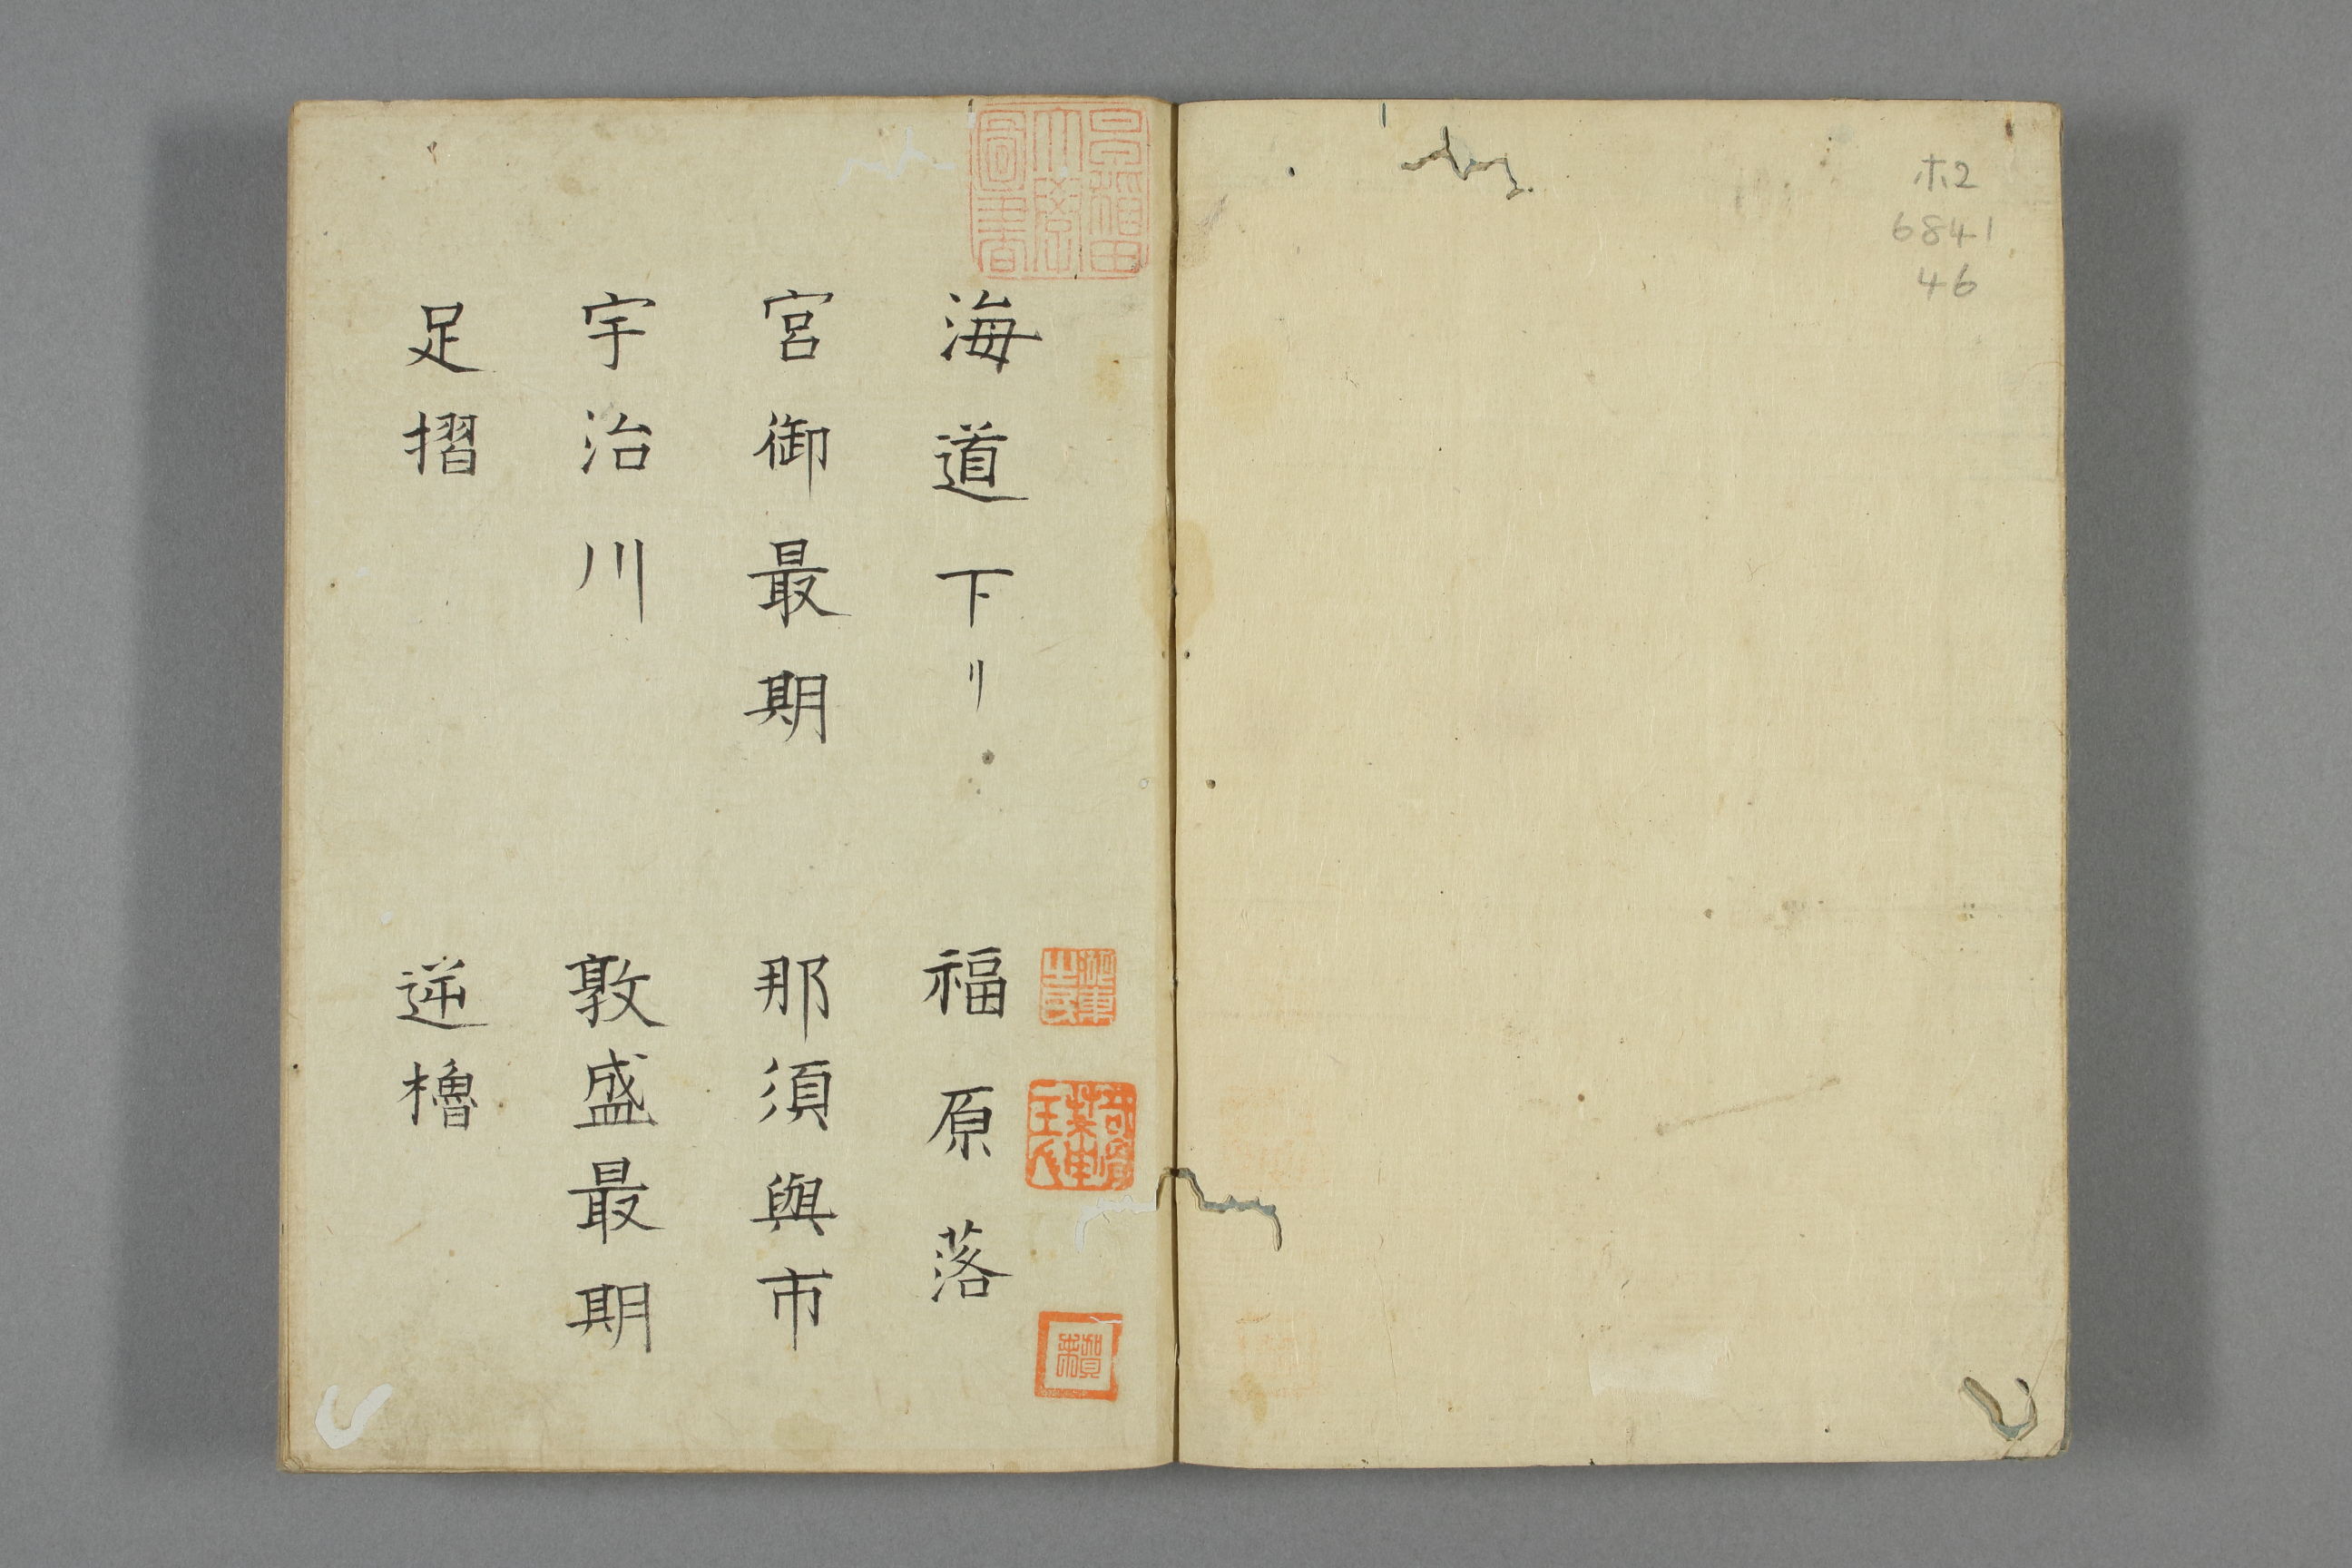 ホ2
6841
46
早稲田大學圖書
海道下リ
福原落
宮御最期
那須與市
宇治川
敦盛最期
足摺
逆櫓